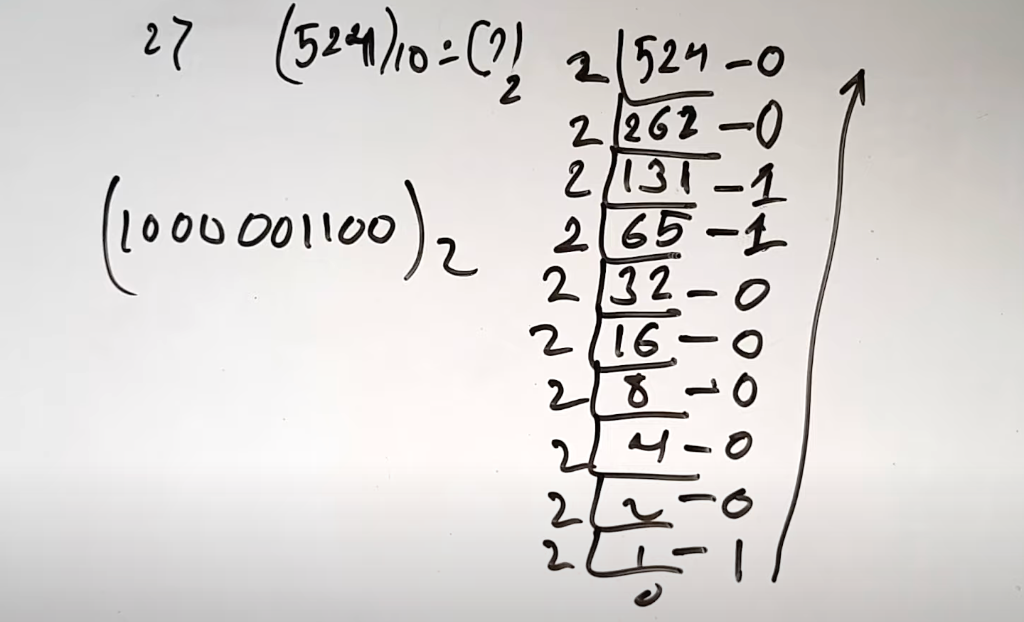 27 (524)₁₀ = (?)₂
(1000001100)₂
2 | 524 - 0
2 | 262 - 0
2 | 131 - 1
2 | 65 - 1
2 | 32 - 0
2 | 16 - 0
2 | 8 - 0
2 | 4 - 0
2 | 2 - 0
2 | 1 - 1
0